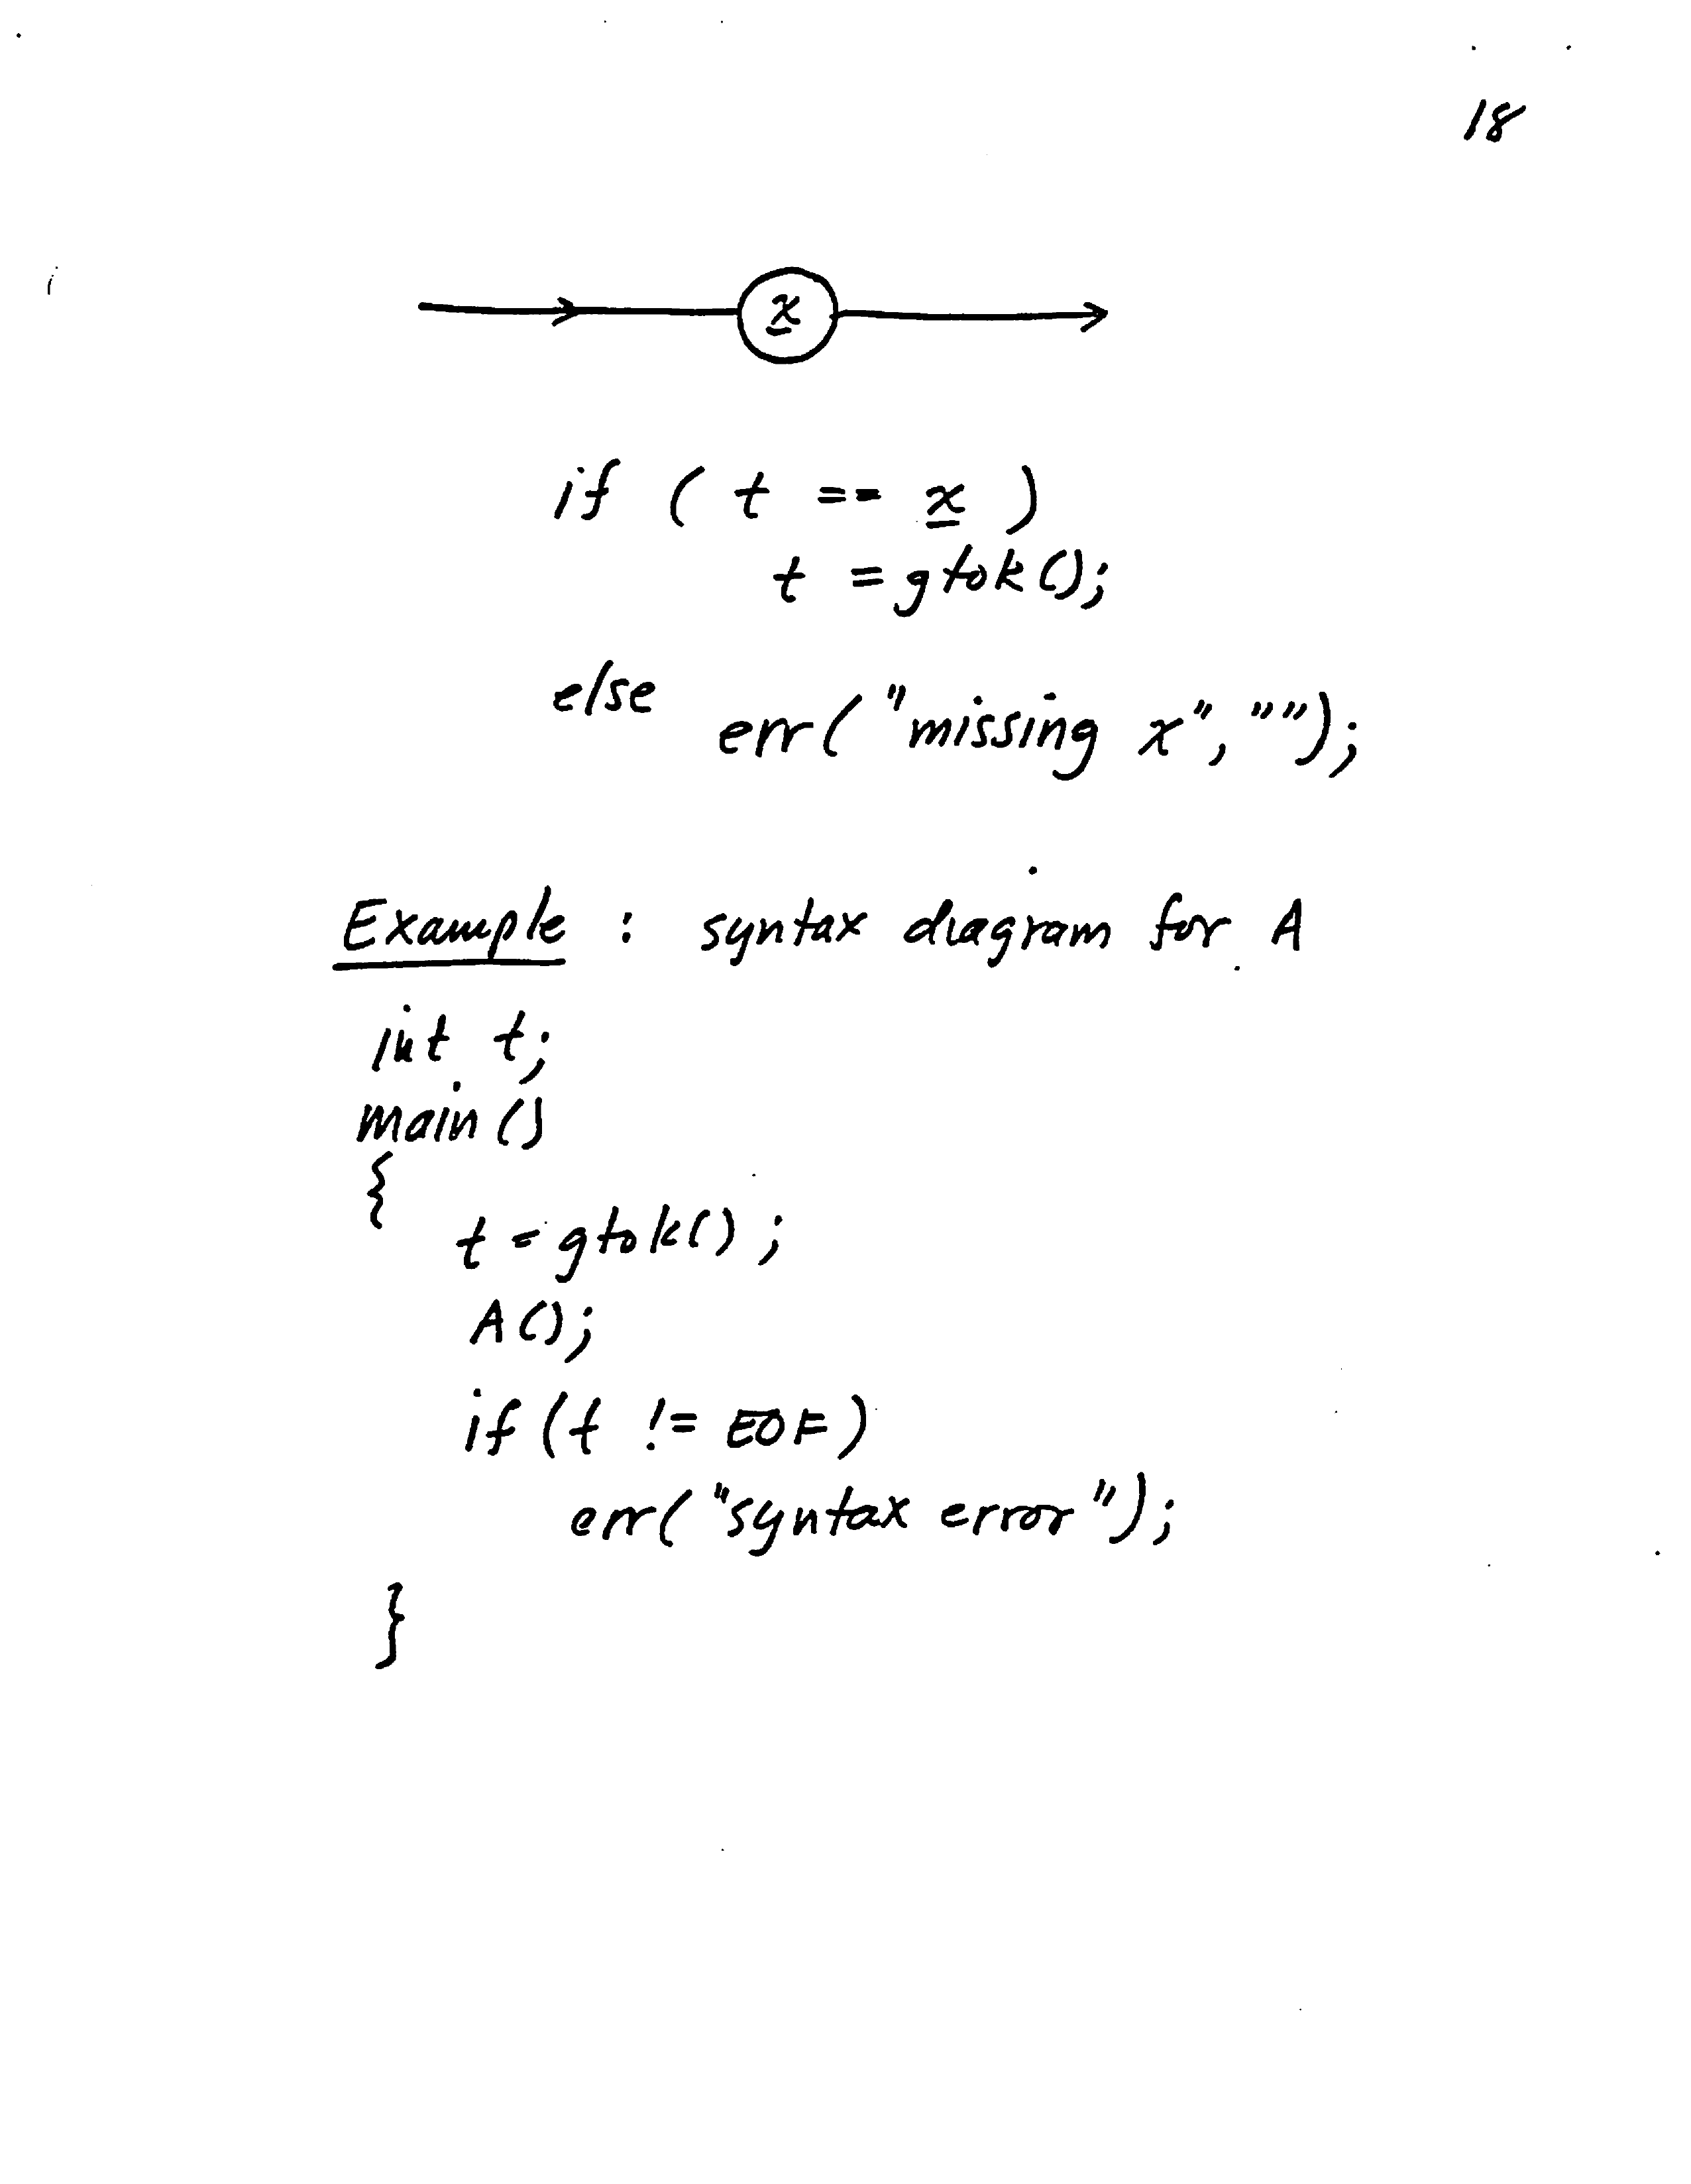 18
x
if ( t == x )
t = gtok();
else
err( "missing x", "");
Example : syntax diagram for A
int t;
main()
{
t = gtok();
A();
if (t != EOF)
err( "syntax error" );
}